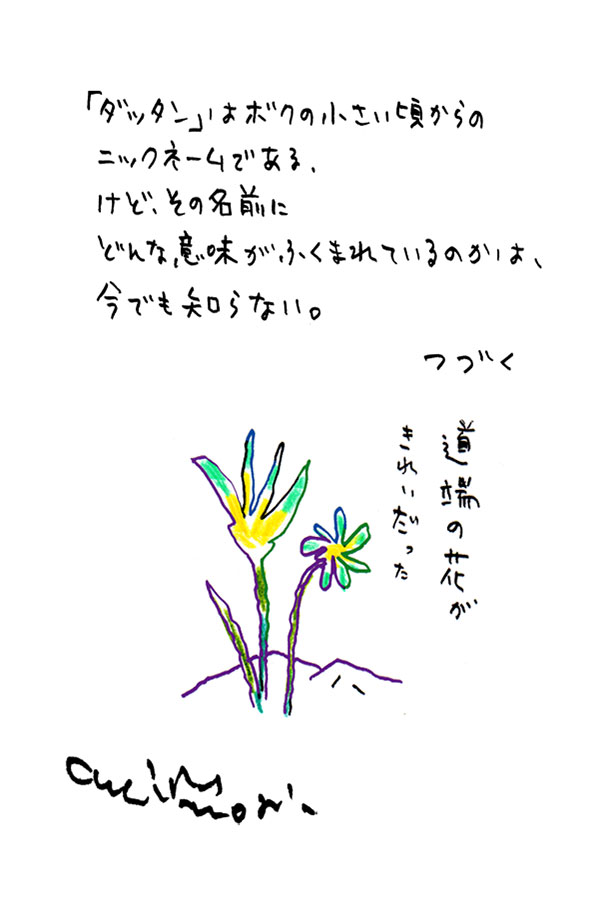 「ダッタン」はボクの小さい頃からの
ニックネームである、
けど、その名前に
どんな意味がふくまれているのかは、
今でも知らない。
つづく
道端の花が
きれいだった